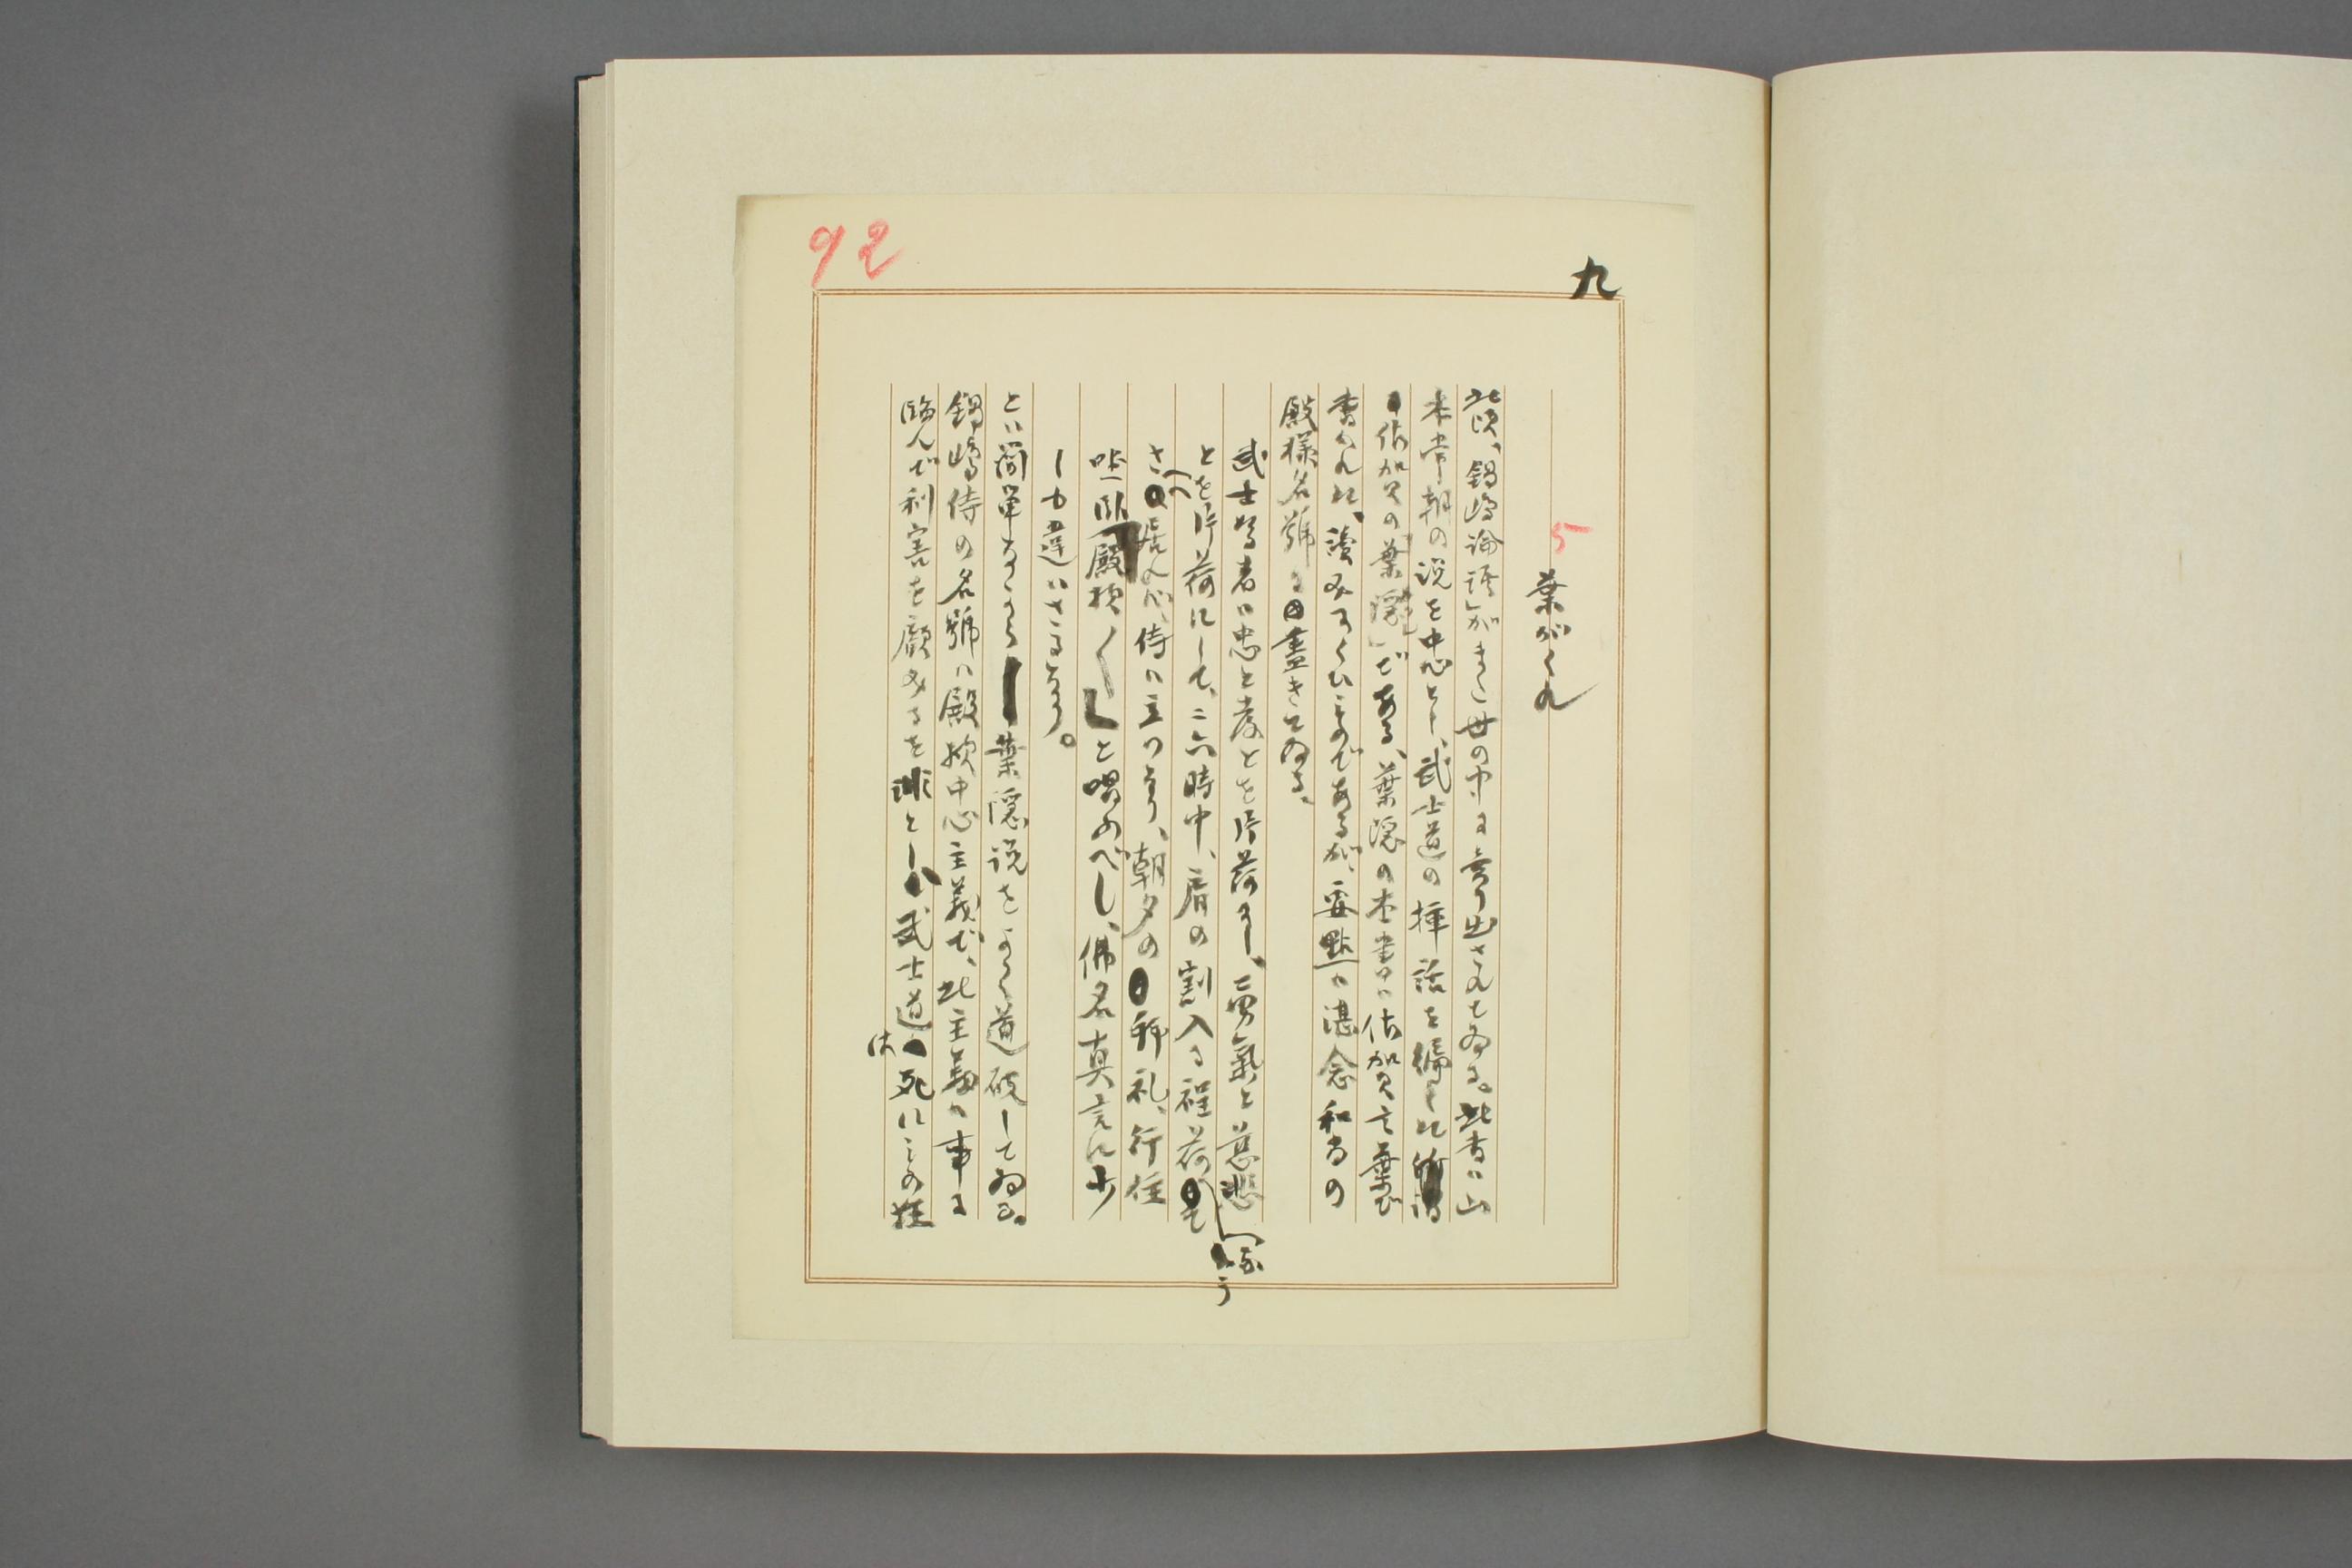 92
九
5
葉がくれ
此頃、鍋嶋論語」がまた世の中に売り出されてゐる。此書は山
本常朝の説を中心とし、武士道の挿話を編した
佐加賀の葉隠」である、葉隠の本書は佐加賀言葉で
書かれた、讀みにくいものであるが、要點は湛念和尚の
殿様名號に盡きてゐる。
武士たる者は忠と孝とを片荷にし、勇氣と慈悲
とを片荷にして、二六時中、肩の割入る程荷うて
さへ居れば、侍は立つなり、朝夕の拜礼、行住
坐臥、殿様〱」と唱ふべし、佛名真言に少
しも違はざるなり。
とは簡単ながら葉隠説をよく道破してゐる。
鍋嶋侍の名號は殿様中心主義で、此主義は事に
臨んで利害を顧みるを非とし武士道は死にその狂